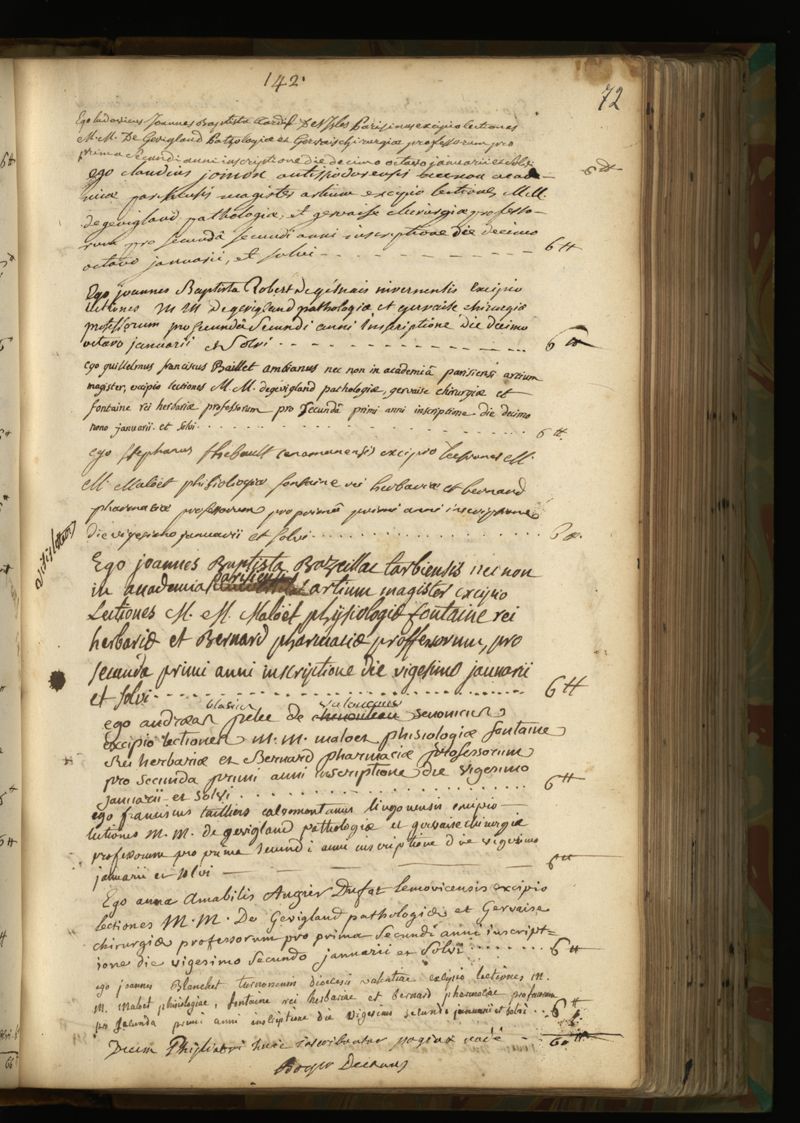 142.
72
Ego ludovicus Joannes Baptista Parisinus excipio lectiones
M.M. De Gevigland Pathologiæ et Gervais chirurgiæ professorum pro
prima secundi anni inscriptione die decimo octavo januarii et solvi
6 ₶
ego claudius antissiodorensis necnon acade-
miæ parisiensis magister artium excipio lectiones M.M.
degevigland pathologiæ, et gervaise chirurgiæ professo-
rum pro secundâ secundi anni inscriptione die decimo
octavo januarii, et solvi 6 ₶
Ego joannes Baptista Robert nivernensis Excipio
lectiones M M degevigland pathologiæ et gervaise chirurgiæ
professorum pro secundâ Secundi anni inscriptione die decimo
octavo januarii et Solvi 6 ₶
ego guillelmus franciscus Baillet ambianus nec non in academiâ parisiensi artium
magister, excipio lectiones M. M. degevigland pathologiæ, gervaise chirurgiæ et
fontaine rei herbariæ professorum pro secundâ primi anni inscriptione die decimo
nono januarii et solvi 6 ₶.
ego stephanus thebault cenomanensis excipio lectiones M.
M. Maloët phisiologiæ fontaine rei herbariæ et bernard
pharmaciæ professorum pro primâ primi anni inscriptione
die vigesimo januarii et solvi 6 ₶.
Ego joannes Baptista Bazeillac tarbiensis nec non
in academia parisiensi artium magister excipio
Lectiones M. M. Maloët physiologiæ fontaine rei
herbariæ et Bernard pharmaciæ proffessorum, pro
secunda primi anni inscriptione die vigesimo januarii
et solvi 6 ₶
blasius valcuques
ego andræas pelée de chenouteau senonicus
excipio lectiones M. M. maloet phisiologiæ fontaine
Rei herbariæ et Bernard pharmaciæ professorum
pro secunda primi anni inscriptione die vigesimo
januarii et solvi 6 ₶
ego franciscus calvomontanus lingonensis excipio
lectiones M. M. de gevigland pathologiæ et gervaise chirurgiæ
professorum pro prima secundi anni inscriptione die vigesimo
januarii et solvi 6 ₶
Ego anna Amabilis Augier Dufot lemovicensis excipio
lectiones M. M. De Gevigland pathologiæ et Gervaise
chirurgiæ professorum pro prima secundi anni inscript=
ione die vigesimo secundo januarii et solvi 6 ₶
ego joannes Blanchet turnonensis diocesis valentiae excipio lectiones M.
M. Maloet phisiologiae, fontaine rei herbariae et bernard pharmaciae professorum
pro secunda primi anni inscriptione die vigesimo secundo januarii et solvi 6 ₶
Decem Philiatri hac inscribuntur pagina 60 ₶
Boyer Decanus